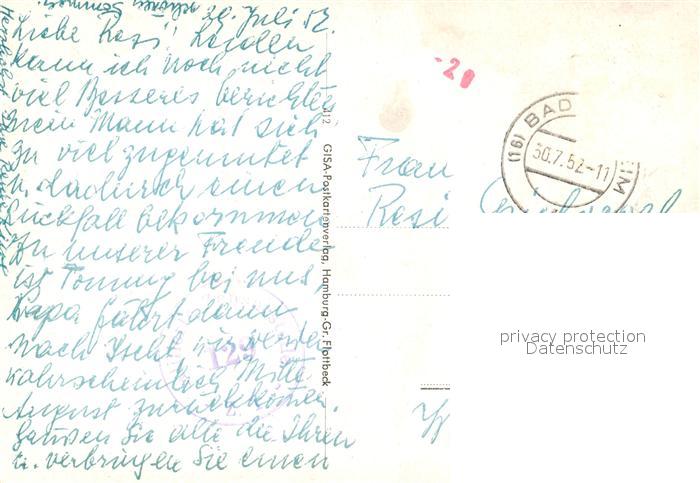 29. Juli 52.
Liebe Resi! Leider
kann ich noch nicht
viel Besseres berichten
mein Mann hat sich
zu viel zugemutet
u. dadurch einen
Rückfall bekommen
Zu unserer Freude
ist Tommy bei uns,
Papa fährt dann
nach Ischl wir werden
wahrscheinlich Mitte
August zurückkommen.
Grüssen Sie alle die Ihren
u. verbringen Sie einen
schönen Sommer.
412 GISA-Postkartenverlag, Hamburg-Gr. Flottbeck
-20
(16) BAD
30.7.52-11
EIM
129
Frau
Resi
privacy protection
Datenschutz